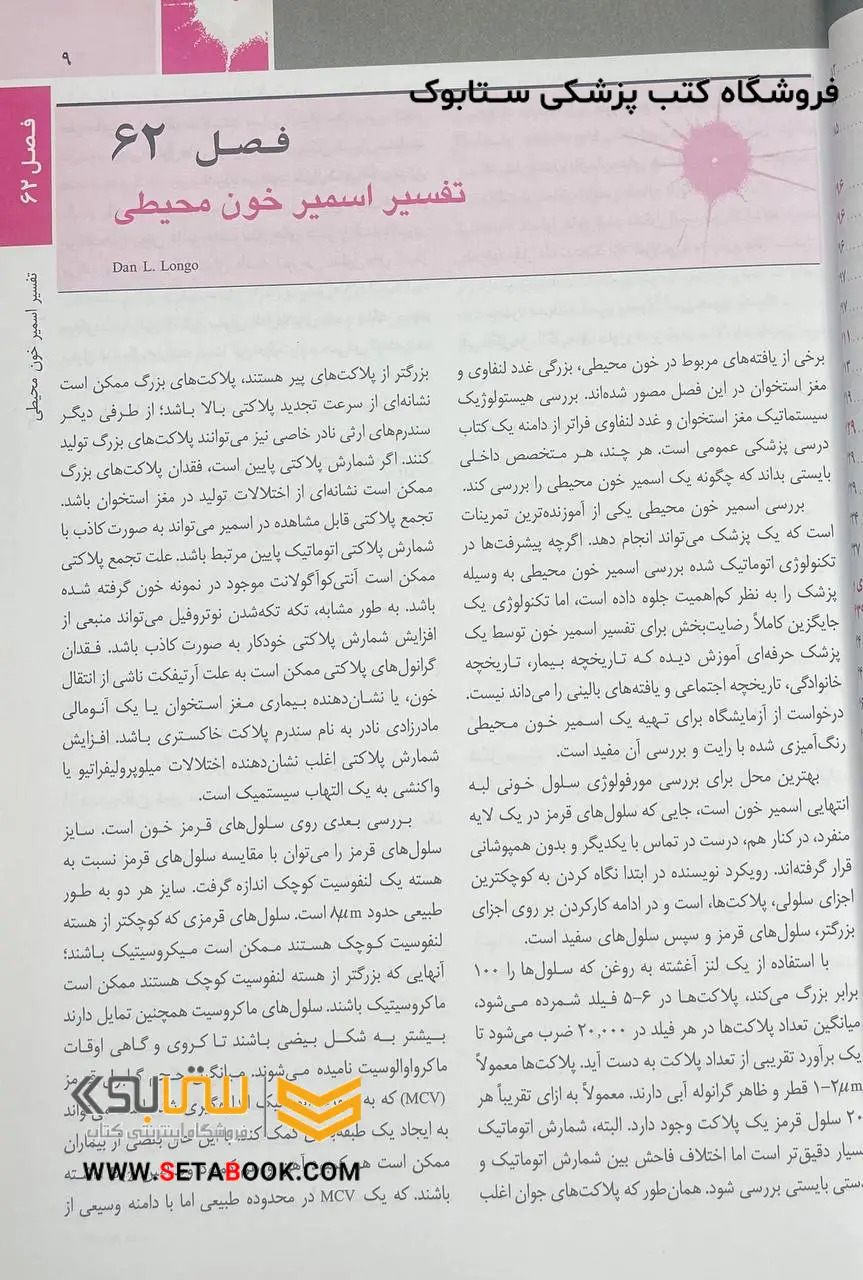 ۹
فروشگاه کتب پزشکی ستابوک
فصل ۶۲
تفسیر اسمیر خون محیطی
Dan L. Longo
فصل ۶۲
تفسیر اسمیر خون محیطی
برخی از یافته‌های مربوط در خون محیطی، بزرگی غدد لنفاوی و
مغز استخوان در این فصل مصور شده‌اند. بررسی هیستولوژیک
سیستماتیک مغز استخوان و غدد لنفاوی فراتر از دامنه یک کتاب
درسی پزشکی عمومی است. هر چند، هر متخصص داخلی
بایستی بداند که چگونه یک اسمیر خون محیطی را بررسی کند.
بررسی اسمیر خون محیطی یکی از آموزنده‌ترین تمرینات
است که یک پزشک می‌تواند انجام دهد. اگرچه پیشرفت‌ها در
تکنولوژی اتوماتیک شده بررسی اسمیر خون محیطی به وسیله
پزشک را به نظر کم‌اهمیت جلوه داده است، اما تکنولوژی یک
جایگزین کاملاً رضایت‌بخش برای تفسیر اسمیر خون توسط یک
پزشک حرفه‌ای آموزش دیده که تاریخچه بیمار، تاریخچه
خانوادگی، تاریخچه اجتماعی و یافته‌های بالینی را می‌داند نیست.
درخواست از آزمایشگاه برای تهیه یک اسمیر خون محیطی
رنگ‌آمیزی شده با رایت و بررسی آن مفید است.
بهترین محل برای بررسی مورفولوژی سلول خونی لبه
انتهایی اسمیر خون است، جایی که سلول‌های قرمز در یک لایه
منفرد، در کنار هم، درست در تماس با یکدیگر و بدون همپوشانی
قرار گرفته‌اند. رویکرد نویسنده در ابتدا نگاه کردن به کوچکترین
اجزای سلولی، پلاکت‌ها، است و در ادامه کارکردن بر روی اجزای
بزرگتر، سلول‌های قرمز و سپس سلول‌های سفید است.
با استفاده از یک لنز آغشته به روغن که سلول‌ها را ۱۰۰
برابر بزرگ می‌کند، پلاکت‌ها در ۶-۵ فیلد شمرده می‌شود،
میانگین تعداد پلاکت‌ها در هر فیلد در ۲۰,۰۰۰ ضرب می‌شود تا
یک برآورد تقریبی از تعداد پلاکت به دست آید. پلاکت‌ها معمولاً
۱-۲µm قطر و ظاهر گرانوله آبی دارند. معمولاً به ازای تقریباً هر
۲۰ سلول قرمز یک پلاکت وجود دارد. البته، شمارش اتوماتیک
بسیار دقیق‌تر است اما اختلاف فاحش بین شمارش اتوماتیک و
دستی بایستی بررسی شود. همان‌طور که پلاکت‌های جوان اغلب
بزرگتر از پلاکت‌های پیر هستند، پلاکت‌های بزرگ ممکن است
نشانه‌ای از سرعت تجدید پلاکتی بالا باشد؛ از طرفی دیگر
سندرم‌های ارثی نادر خاصی نیز می‌توانند پلاکت‌های بزرگ تولید
کنند. اگر شمارش پلاکتی پایین است، فقدان پلاکت‌های بزرگ
ممکن است نشانه‌ای از اختلالات تولید در مغز استخوان باشد.
تجمع پلاکتی قابل مشاهده در اسمیر می‌تواند به صورت کاذب با
شمارش پلاکتی اتوماتیک پایین مرتبط باشد. علت تجمع پلاکتی
ممکن است آنتی‌کوآگولانت موجود در نمونه خون گرفته شده
باشد. به طور مشابه، تکه تکه‌شدن نوتروفیل می‌تواند منبعی از
افزایش شمارش پلاکتی خودکار به صورت کاذب باشد. فقدان
گرانول‌های پلاکتی ممکن است به علت آرتیفکت ناشی از انتقال
خون، یا نشان‌دهنده بیماری مغز استخوان یا یک آنومالی
مادرزادی نادر به نام سندرم پلاکت خاکستری باشد. افزایش
شمارش پلاکتی اغلب نشان‌دهنده اختلالات میلوپرولیفراتیو یا
واکنشی به یک التهاب سیستمیک است.
بررسی بعدی روی سلول‌های قرمز خون است. سایز
سلول‌های قرمز را می‌توان با مقایسه سلول‌های قرمز نسبت به
هسته یک لنفوسیت کوچک اندازه گرفت. سایز هر دو به طور
طبیعی حدود ۸µm است. سلول‌های قرمزی که کوچکتر از هسته
لنفوسیت کوچک هستند ممکن است میکروسیتیک باشند؛
آنهایی که بزرگتر از هسته لنفوسیت کوچک هستند ممکن است
ماکروسیتیک باشند. سلول‌های ماکروسیت همچنین تمایل دارند
بیشتر به شکل بیضی باشند تا کروی و گاهی اوقات
ماکرواوالوسیت نامیده می‌شوند. میانگین حجم قرمز
(MCV) که به
به ایجاد یک کمک کند بیماران
ممکن است
باشند. که یک MCV در محدوده طبیعی اما با دامنه وسیعی از
ستابوک
فروشگاه اینترنتی کتاب
WWW.SETABOOK.COM